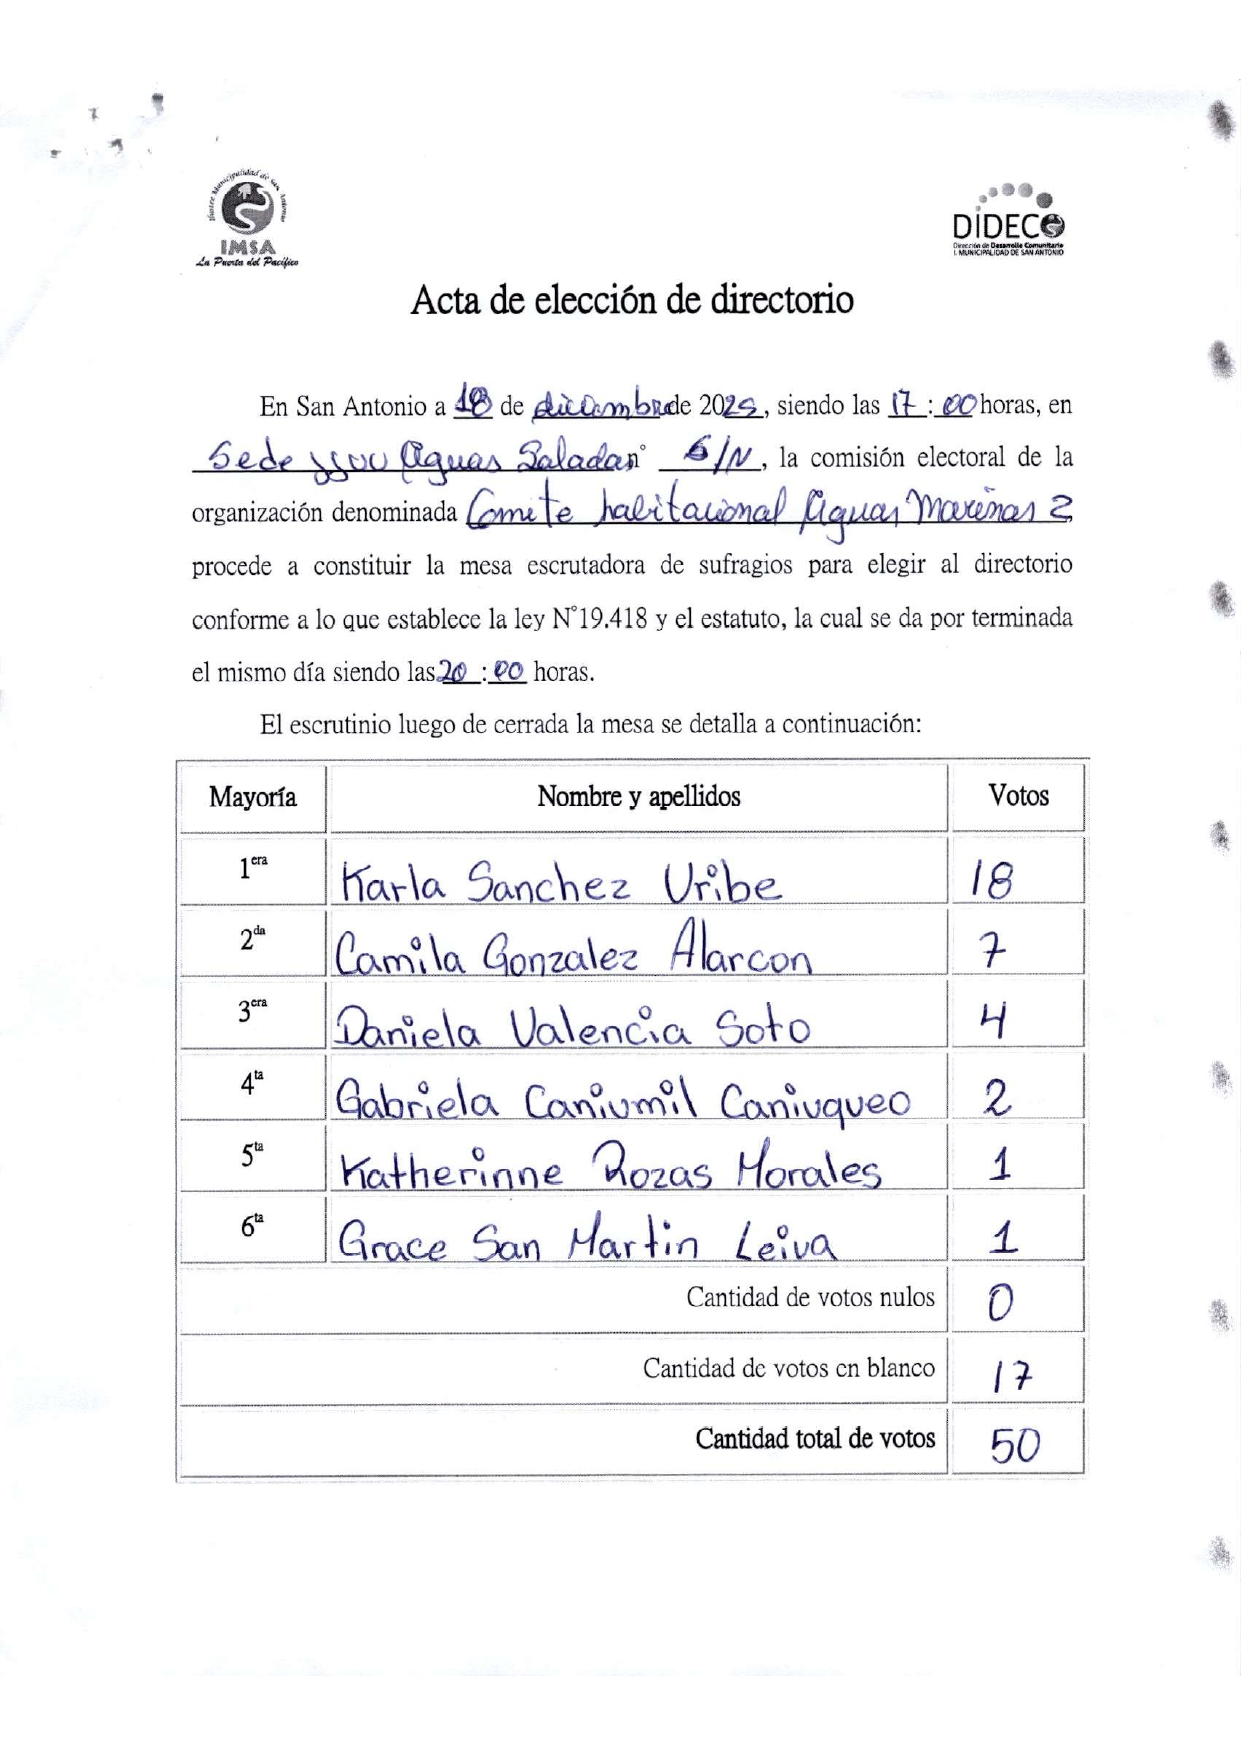 Ilustre Municipalidad de San Antonio
IMSA
La Puerta del Pacífico
DIDECO
Dirección de Desarrollo Comunitario
I. MUNICIPALIDAD DE SAN ANTONIO
Acta de elección de directorio
En San Antonio a 18 de diciembre de 2025, siendo las 17:00 horas, en
Sede jjvv Aguas Saladas n° S/N, la comisión electoral de la
organización denominada Comite habitacional Aguas Marinas 2
procede a constituir la mesa escrutadora de sufragios para elegir al directorio
conforme a lo que establece la ley N°19.418 y el estatuto, la cual se da por terminada
el mismo día siendo las 20:00 horas.
El escrutinio luego de cerrada la mesa se detalla a continuación:
Mayoría Nombre y apellidos Votos
1era Karla Sanchez Uribe 18
2da Camila Gonzalez Alarcon 7
3era Daniela Valencia Soto 4
4ta Gabriela Caniumil Caniuqueo 2
5ta Katherinne Rozas Morales 1
6ta Grace San Martin Leiva 1
Cantidad de votos nulos 0
Cantidad de votos en blanco 17
Cantidad total de votos 50